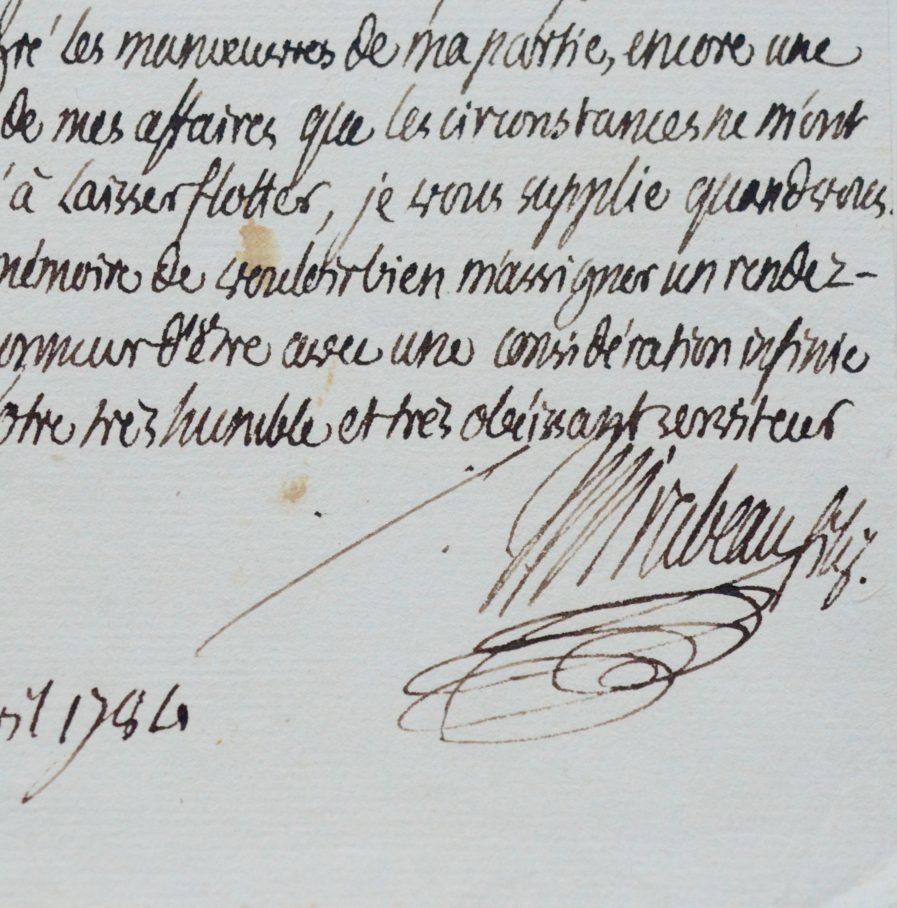 les manœuvres de ma partie, encore une
de mes affaires que les circonstances ne m'ont
à laisser flotter, je vous supplie quand vous
mémoire de vouloir bien m'assigner un rendez-
onneur d'être avec une considération infinie
otre très humble et très obéissant serviteur
Mirabeau fils.
ril 1784